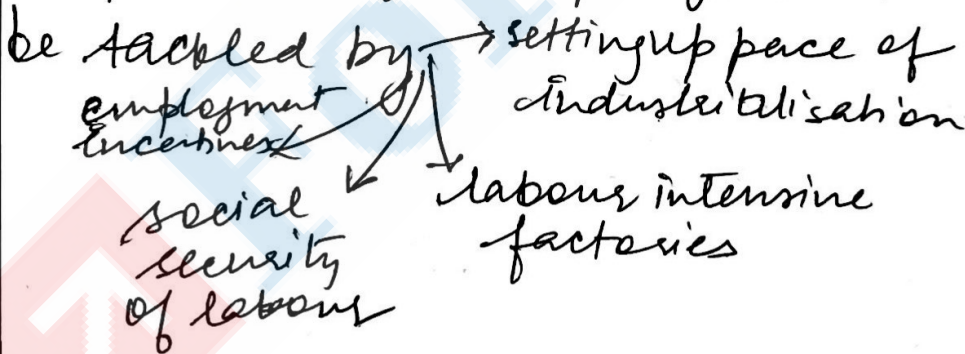 be tackled by → setting up pace of
industrialisation
employment
incentives
social
security
of labour
labour intensive
factories